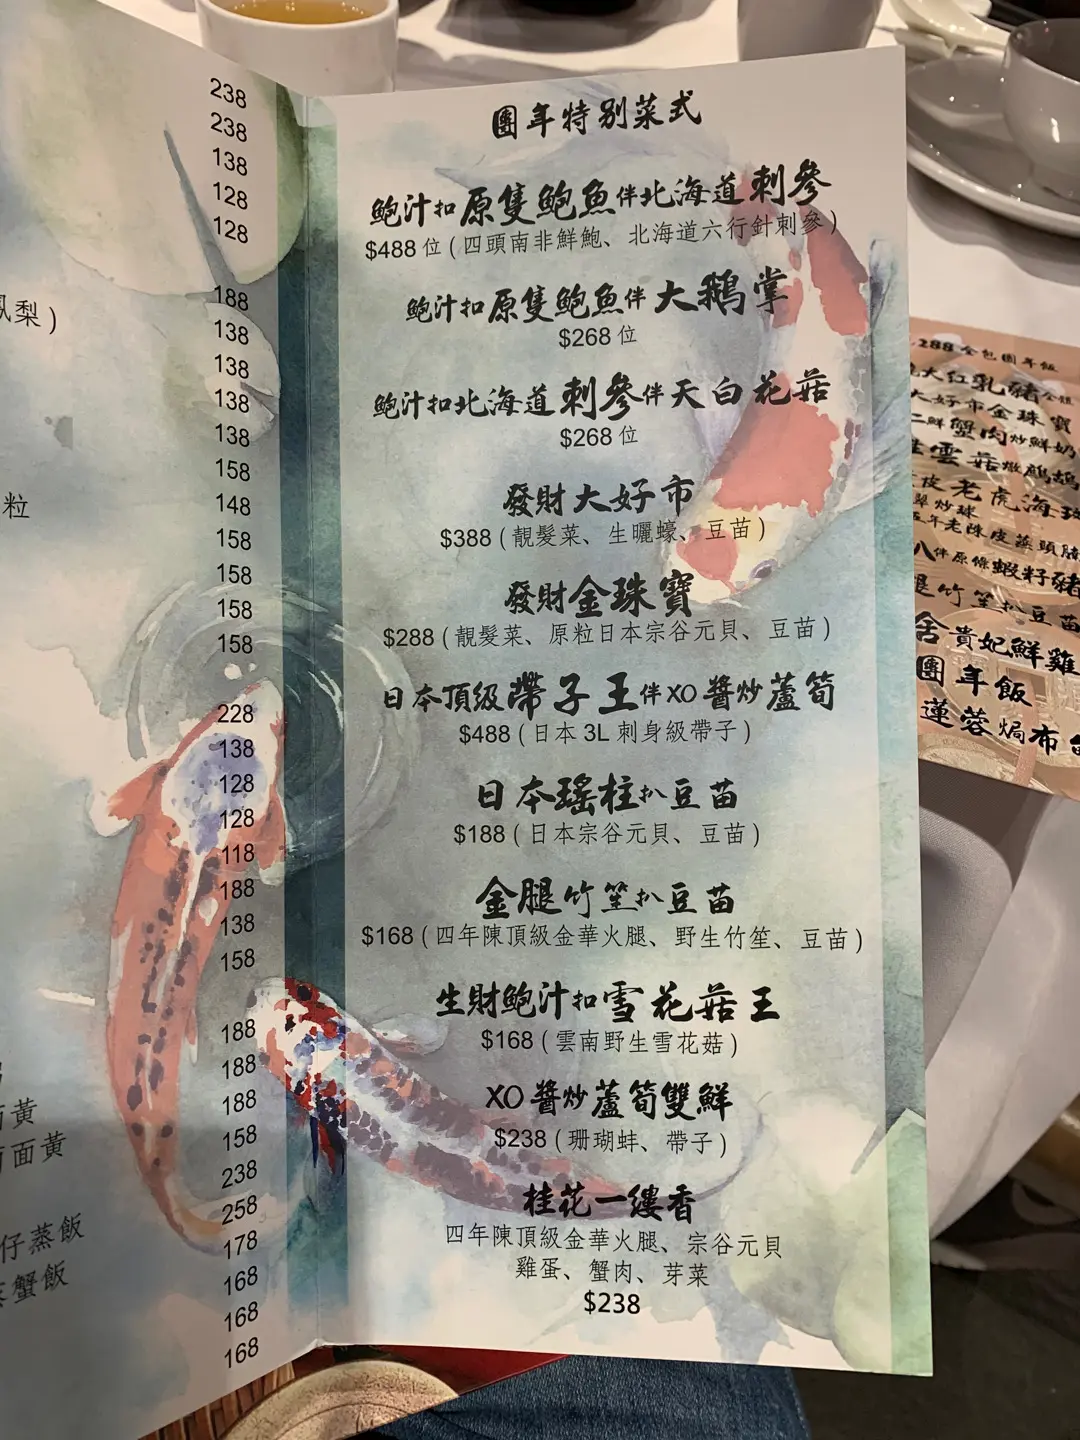 238
238
138
128
128
188
梨)
138
138
138
138
158
148
粒
158
158
158
158
228
138
128
128
118
188
138
158
188
188
188
黃
158
面黃
238
258
仔蒸飯
178
蟹飯
168
168
168
團年特别菜式
鮑汁扣原隻鮑魚伴北海道刺參
$488 位 (四頭南非鮮鮑、北海道六行針刺參)
鮑汁扣原隻鮑魚伴大鵝掌
$268 位
鮑汁扣北海道刺參伴天白花菇
$268 位
發財大好市
$388 (靚髮菜、生曬蠔、豆苗)
發財金珠寶
$288 (靚髮菜、原粒日本宗谷元貝、豆苗)
日本頂級帶子王伴XO醬炒蘆筍
$488 (日本 3L 刺身級帶子)
日本瑤柱扒豆苗
$188 (日本宗谷元貝、豆苗)
金腿竹笙扒豆苗
$168 (四年陳頂級金華火腿、野生竹笙、豆苗)
生財鮑汁扣雪花菇王
$168 (雲南野生雪花菇)
XO醬炒蘆筍雙鮮
$238 (珊瑚蚌、帶子)
桂花一縷香
四年陳頂級金華火腿、宗谷元貝
雞蛋、蟹肉、芽菜
$238
288全包團年飯
大紅乳豬全體
大好市金珠寶
鮮蟹肉炒鮮奶
雲菇燉鷓鴣
皮老虎海
炒球
年老陳皮蒸頭
八伴原條蝦籽豬
竹笙扒豆苗
貴妃鮮雞
團年飯
蓮蓉焗布